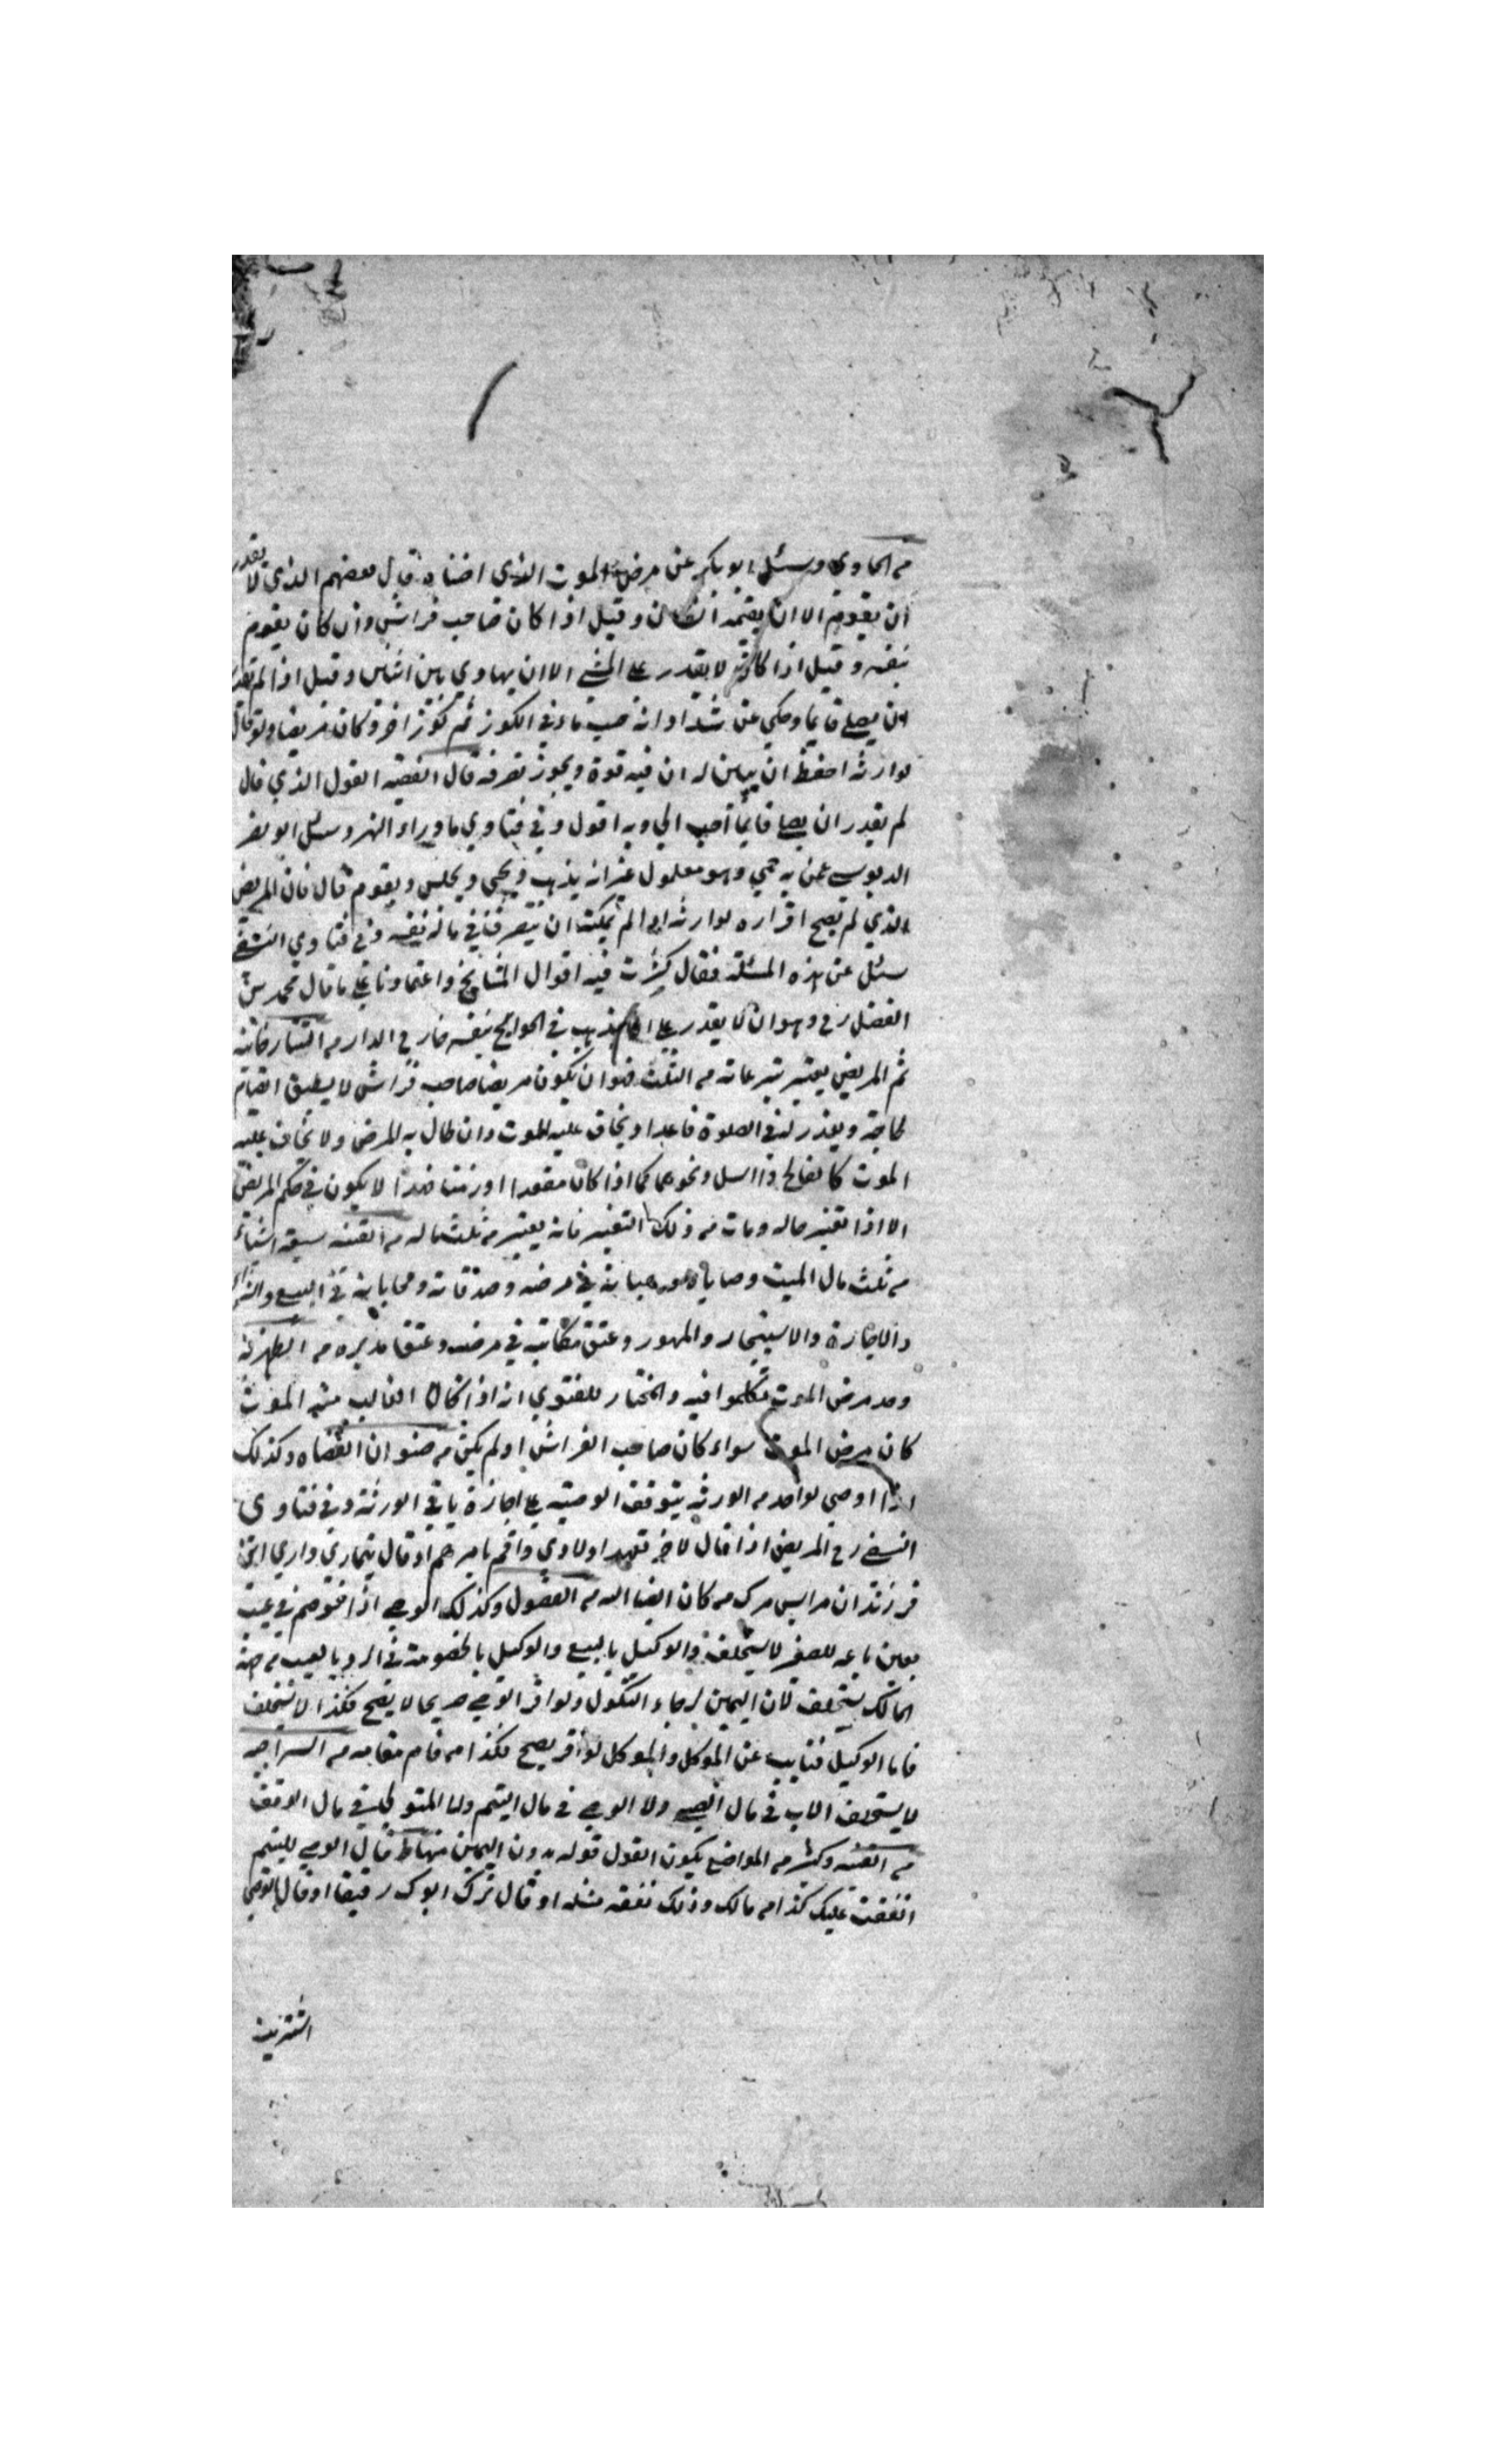 من الحاوي وسئل ابو بكر عن مرض الموت الذي اضناه قال بعضهم الذي لا يقدر
ان يقوم الا ان يقيمه انسان وقيل اذا كان صاحب فراش وان كان يقوم
بنفسه وقيل اذا كان لا يقدر على المشي الا ان يهادي بين اثنين وقيل اذا لم يقدر
ان يصلي قايما وحكي عن شداد انه صب ماء في الكوز ثم كوز اخر وكان مريضا وقال
لوارثه احفظ ان يباين له ان فيه قوة ويجوز تصرفه قال الفقيه القول الذي قال
لم يقدر ان يصلي قايما احب الي وبه اقول وفي فتاوي ما وراء النهر وسئل ابو نصر
الدبوسي عمن به حمي وهو معلول غير انه يذهب ويجي ويجلس ويقوم قال فان المريض
الذي لم يصح اقراره لوارثه اذا لم يمكنه ان يتصرف في ماله بنفسه وفي فتاوي النسفي
سئل عن هذه المسئلة فقال كثرت فيه اقوال المشايخ واعتمادنا على ما قال محمد بن
الفضل رح وهو ان لا يقدر على ان يذهب في الحوايج بنفسه خارج الدار من التتارخانيه
ثم المريض يعتبر تبرعاته من الثلث هو ان يكون مريضا صاحب فراش لا يطيق القيام
لحاجته ويعذر له في الصلوة قاعدا ويخاف عليه الموت وان طال به المرض ولا يخاف عليه
الموت كالفالج والسل ونحوهما كما اذا كان مقعدا او زمنا فهذا لا يكون في حكم المريض
الا اذا تغير حاله ومات من ذلك التغير فانه يعتبر من ثلث ماله من القنيه سبعة اشياء
من ثلث مال الميت وصاياه وهباته في مرضه وصدقاته ومحاباته في البيع والشراء
والاجارة والاستيجار والمهور وعتق مكاتبه في مرضه وعتق مدبره من الظهيرية
وحد مرض الموت تكلموا فيه والمختار للفتوي انه اذا كان الغالب منه الموت
كان مرض الموت سواء كان صاحب الفراش او لم يكن من صنوان القضاه وكذلك
اذا اوصي لواحد من الورثه يتوقف الوصيه على اجازة باقي الورثة وفي فتاوى
النسفي رح المريض اذا قال لاخر تعهد اولادي واقم بامرهم او قال تيماري داري اين
فرزندان مرا پس مرك من كان ايصا اله من الفصول وكذلك الوصي اذا خوصم في عيب
بعين باعه للصغير لا يستحلف والوكيل بالبيع والوكيل بالخصومة في الرد بالعيب من جهة
المالك يستحلف لان اليمين لرجاء النكول ولو اقر الوصي صريحا لا يصح فكذا لا يستحلف
فاما الوكيل فنايب عن الموكل والموكل لو اقر يصح فكذا من قام مقامه من السراجيه
لا يستحلف الاب في مال الصبي ولا الوصي في مال اليتيم ولا المتولي في مال الوقف
من القنيه وكثير من المواضع يكون القول قوله بدون اليمين قال الوصي لليتيم
انفقت عليك كذا من مالك وذلك نفقة مثله او قال ترك ابوك رقيقا او قال الوصي
اشتريت